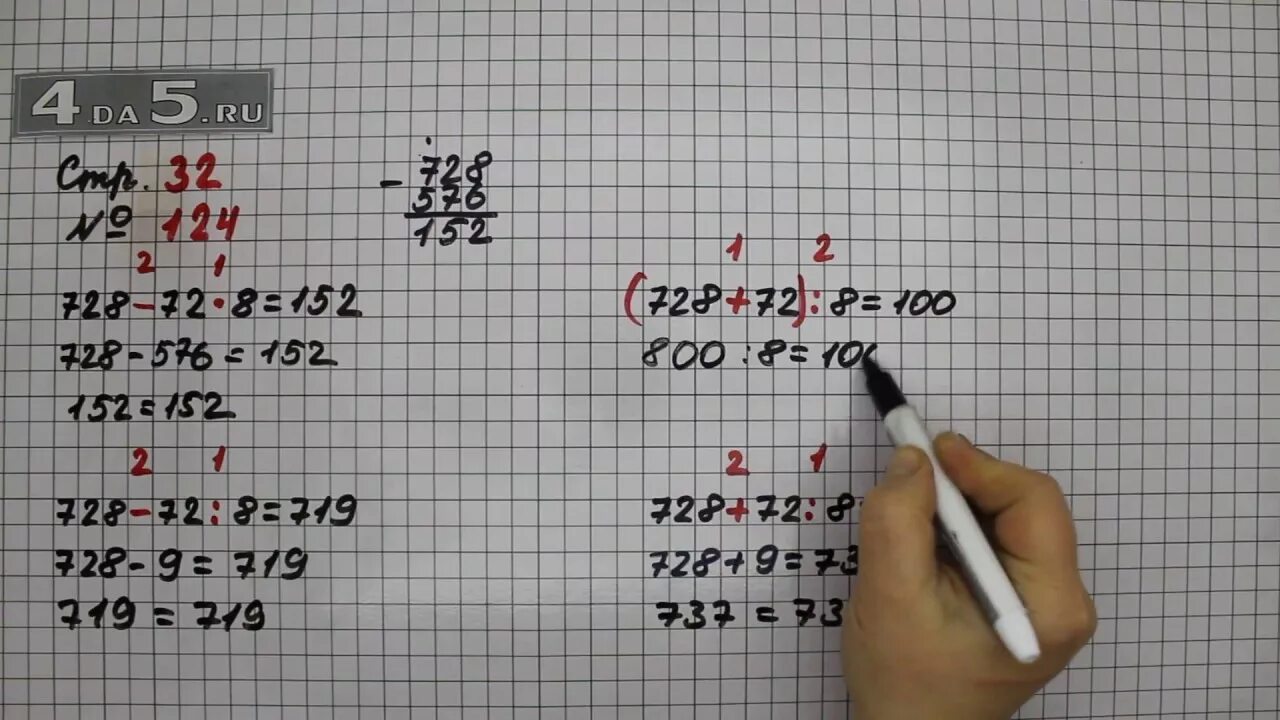 4DA5.RU
Стр. 32
№ 124
728
- 576
152
2 1
728-72·8=152
728-576=152
152=152
2 1
728-72:8=719
728-9=719
719=719
1 2
(728+72):8=100
800:8=10
2 1
728+72:8
728+9=73
737=73